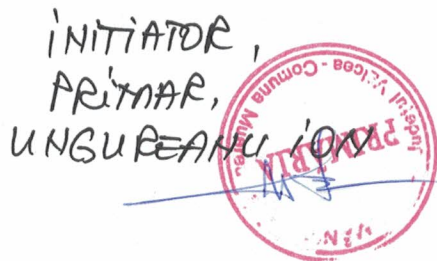 INITIATOR,
PRIMAR,
UNGUREANU ION
Județul Vâlcea - Comuna
PRIMĂRIA